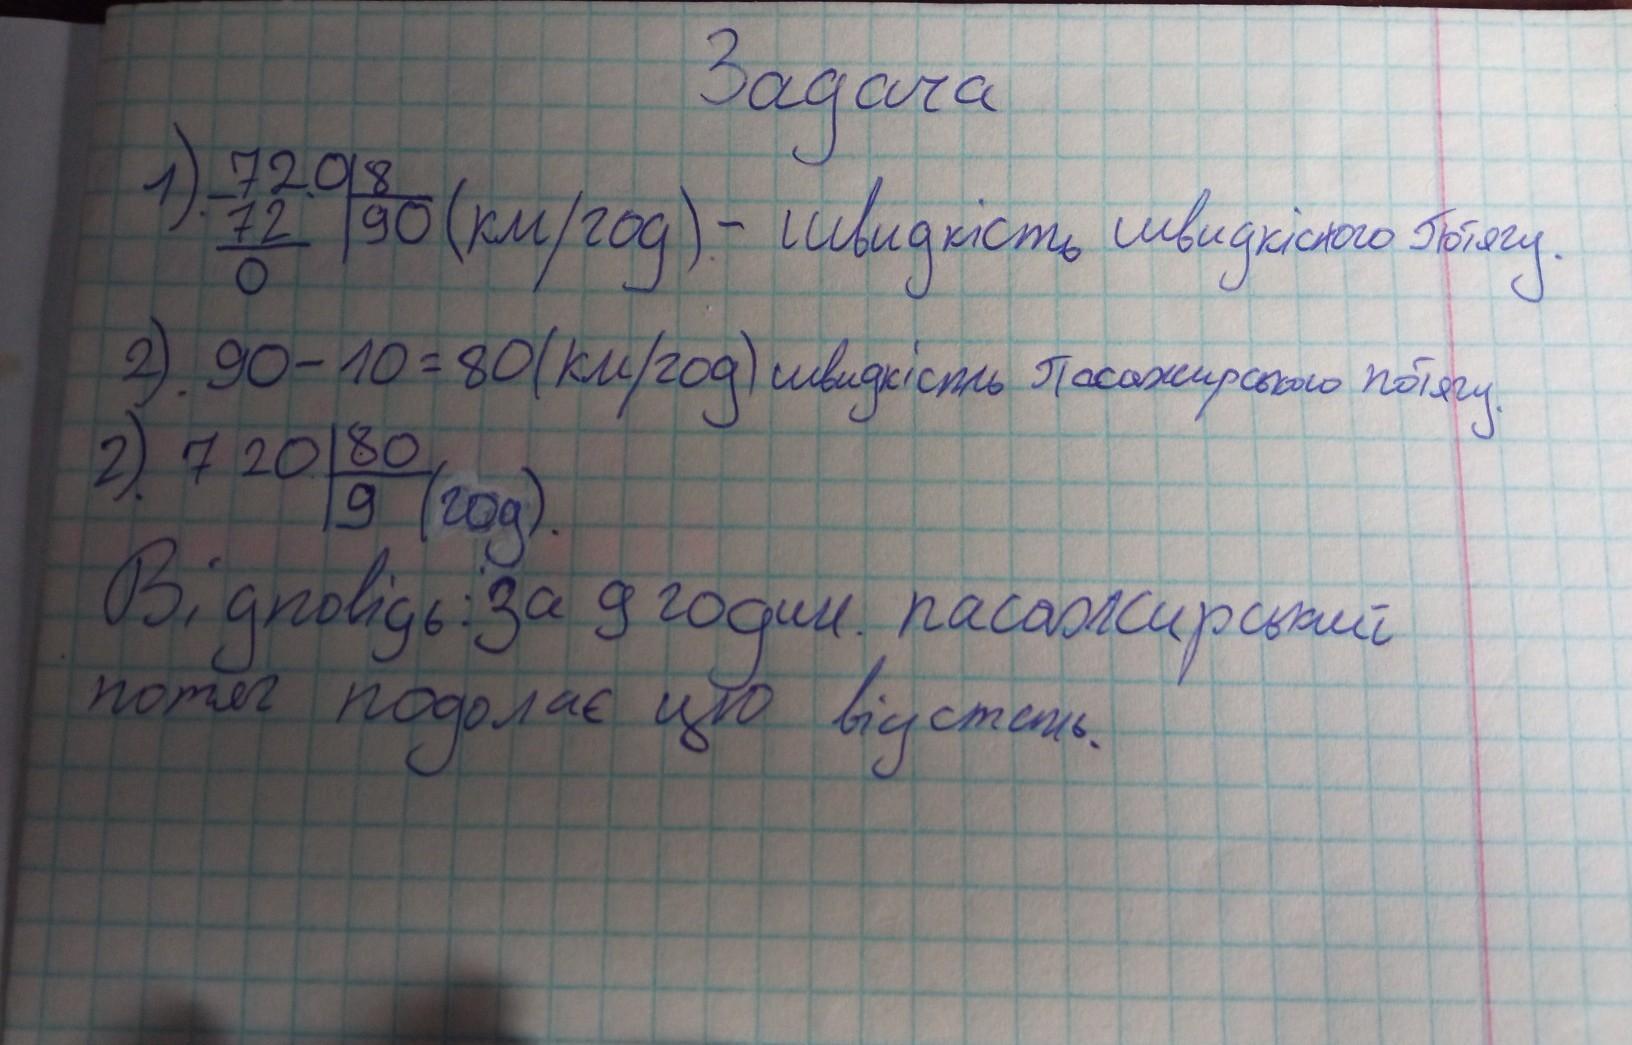 Задача
1). 720 | 8
72 | 90 (км/год). - швидкість швидкісного потягу.
0
2). 90 - 10 = 80 (км/год) швидкість пасажирського потягу.
2). 720 | 80
9 (год).
Відповідь: за 9 годин. пасажирський
потяг подолає цю відстань.